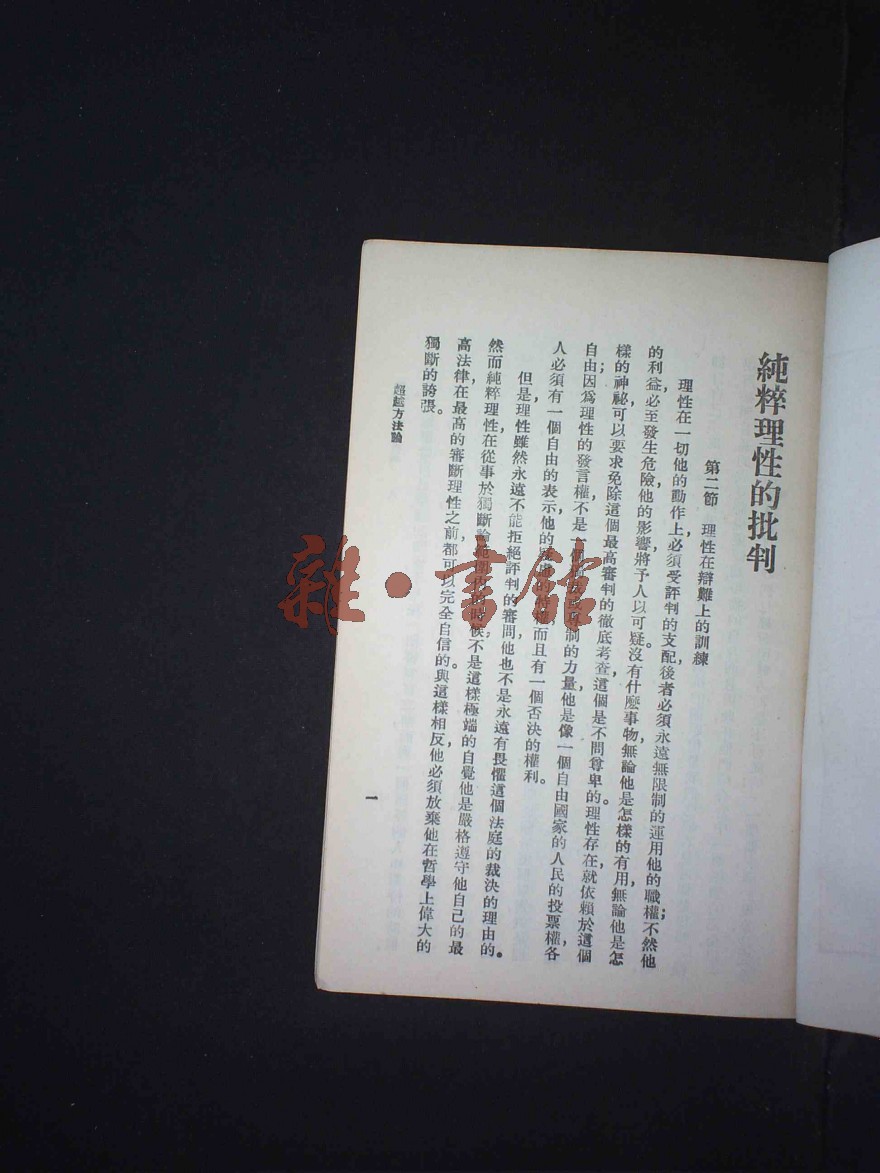 純粹理性的批判
第二節　理性在辯難上的訓練
理性在一切他的動作上必須受評判的支配，後者必須永遠無限制的運用他的職權；不然他
的利益，必至發生危險，他的影響將予人以可疑。沒有什麽事物，無論他是怎樣的有用，無論他是怎
樣的神祕，可以要求免除這個最高審判的徹底考查，這個是不問尊卑的。理性存在就依賴於這個
自由；因爲理性的發言權，不是一個制的力量，他是像一個自由國家的人民的投票權，各
人必須有一個自由的表示他的而且有一個否決的權利。
但是，理性雖然永遠不能拒絕評判的審問，他也不是永遠有畏懼這個法庭的裁決的理由的。
然而，純粹理性在從事於獨斷論範圍內的時候，不是這樣極端的自覺他是嚴格遵守他自己的最
高法律，在最高的審斷理性之前，都可以完全自信的。與這樣相反，他必須放棄他在哲學上偉大的
獨斷的誇張。
超越方法論
一
雜·書館